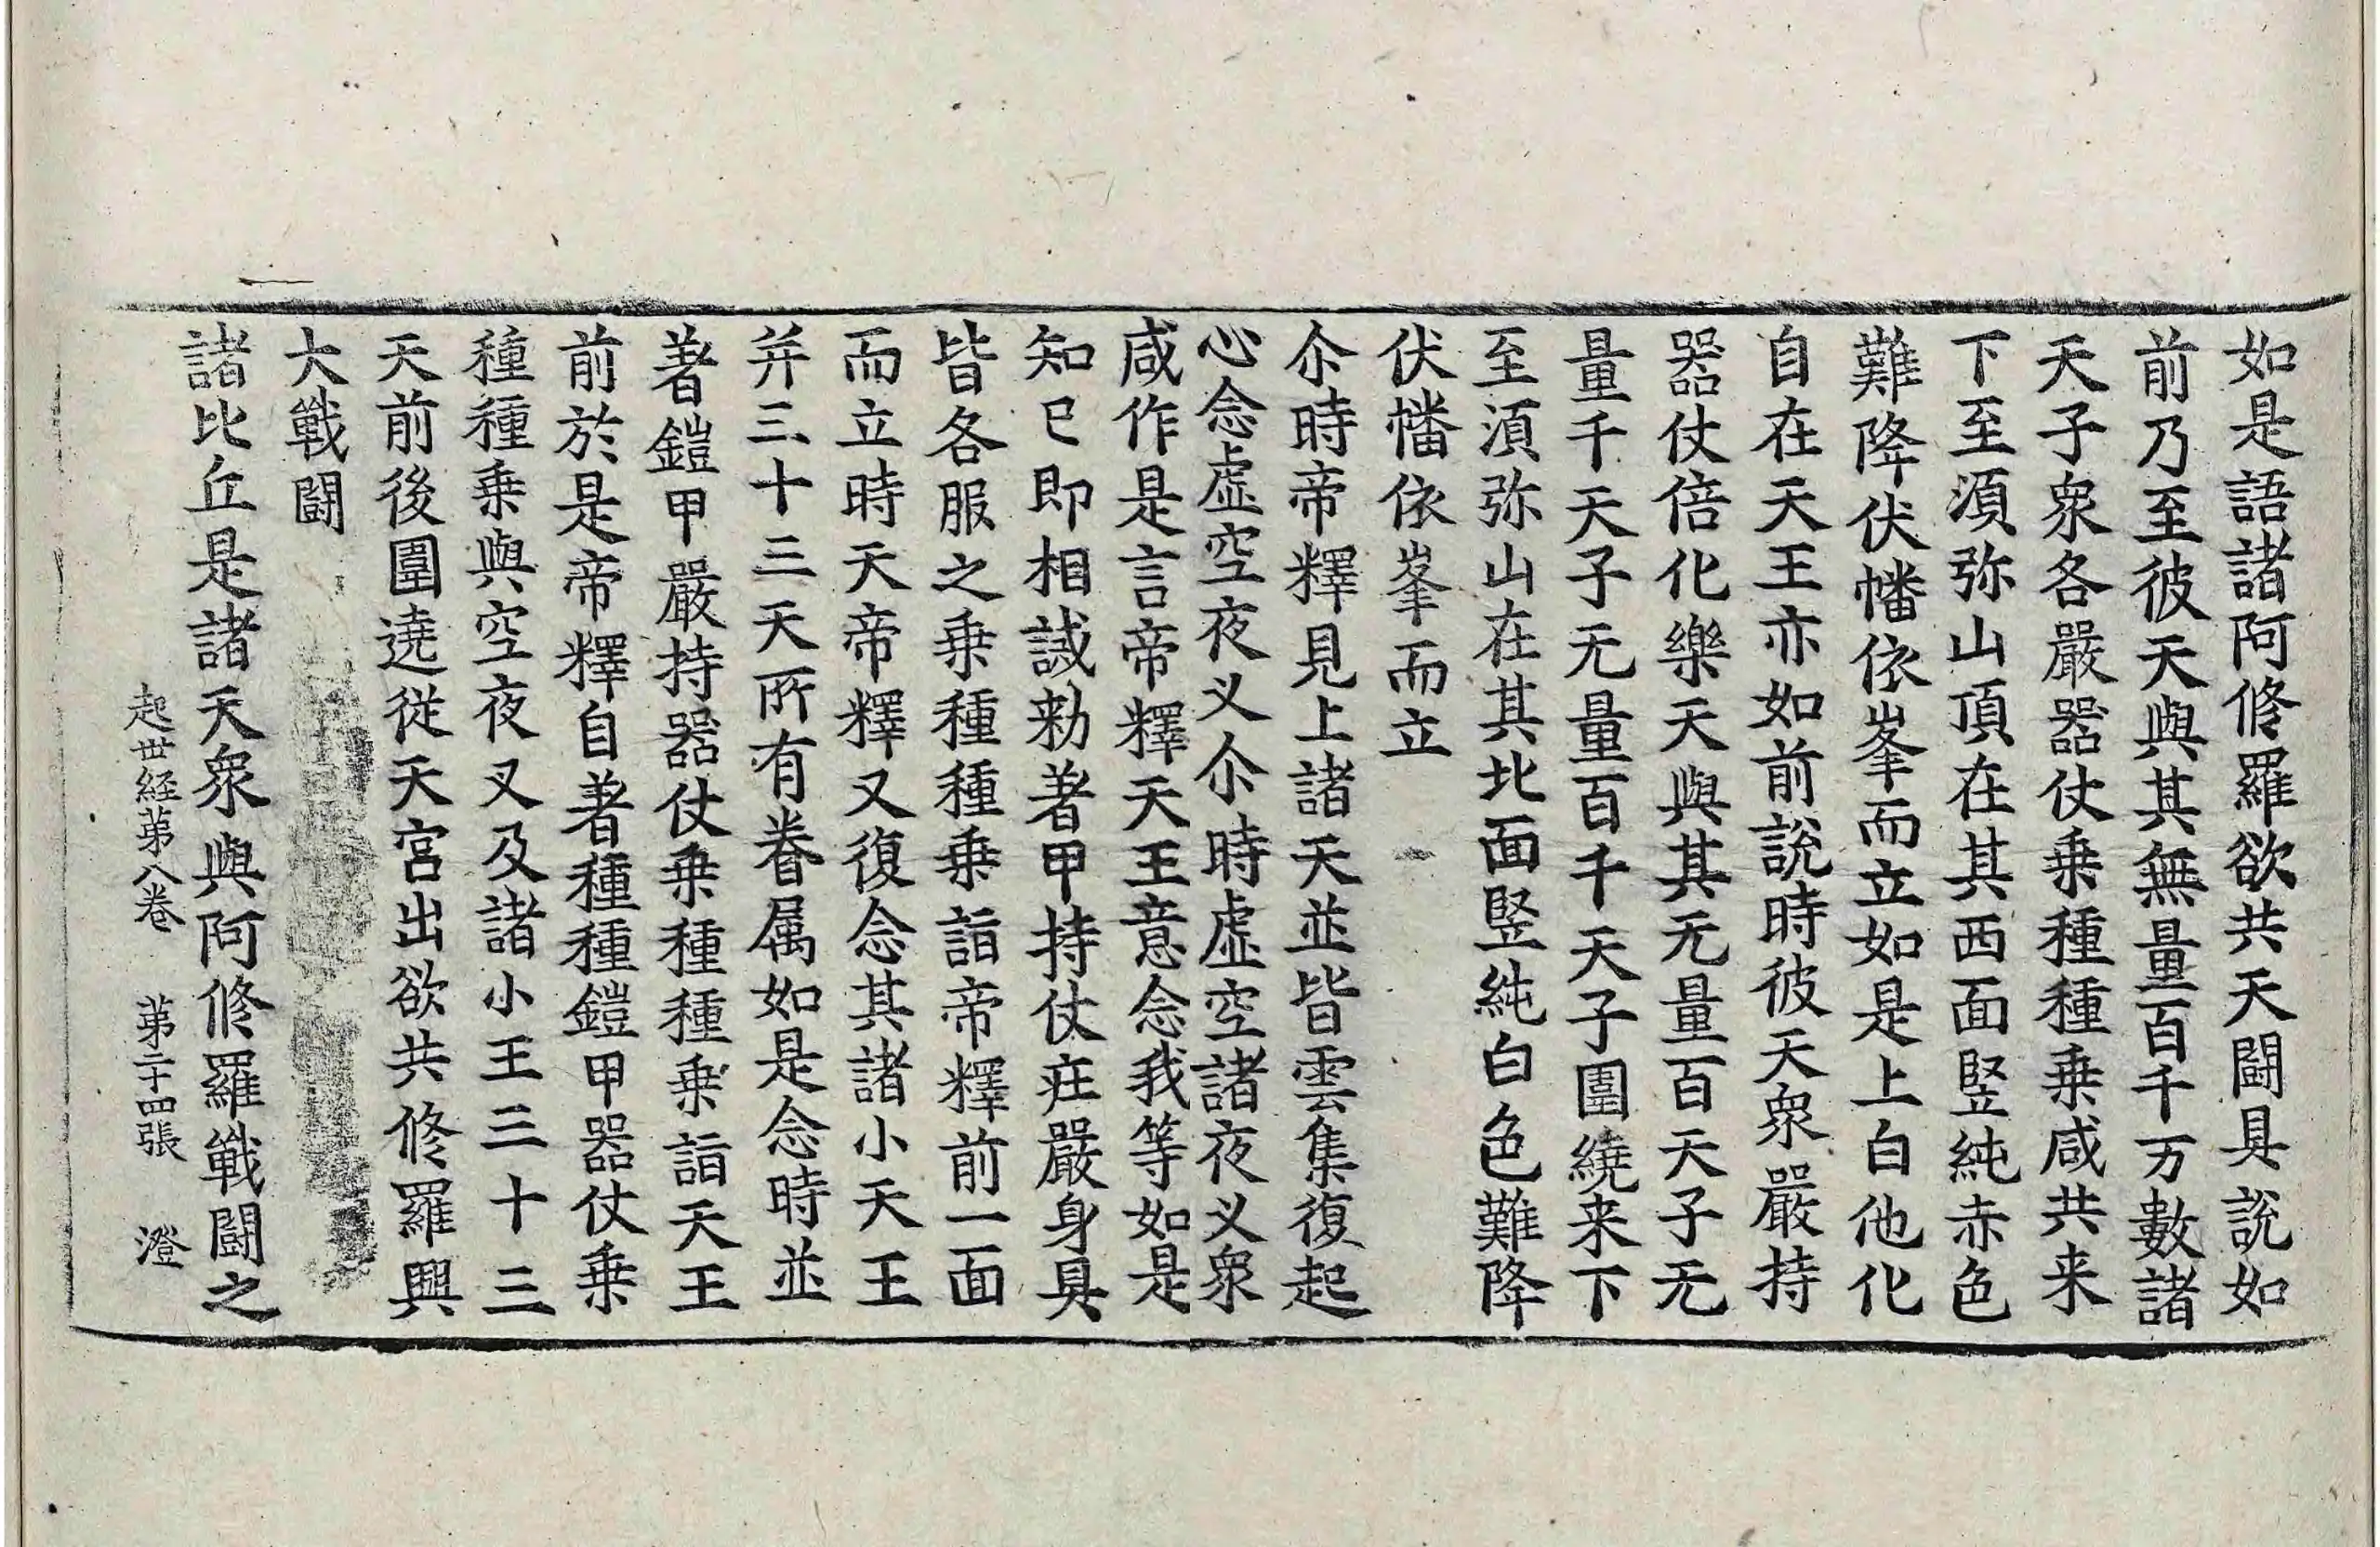 如是語諸阿修羅欲共天闘具說如
前乃至彼天與其無量百千万數諸
天子衆各嚴器仗乗種種乗咸共来
下至湏弥山頂在其西面竪純赤色
難降伏幡依峯而立如是上白他化
自在天王亦如前說時彼天衆嚴持
器仗倍化樂天與其无量百天子无
量千天子无量百千天子圍繞来下
至湏弥山在其北面竪純白色難降
伏幡依峯而立
尒時帝釋見上諸天並皆雲集復起
心念虛空夜叉尒時虛空諸夜叉衆
咸作是言帝釋天王意念我等如是
知已即相誡勑著甲持仗疘嚴身具
皆各服之乗種種乗詣帝釋前一面
而立時天帝釋又復念其諸小天王
并三十三天所有眷属如是念時並
著鎧甲嚴持器仗乗種種乗詣天王
前於是帝釋自著種種鎧甲器仗乗
種種乗與空夜叉及諸小王三十三
天前後圍遶從天宮出欲共修羅興
大戰闘
諸比丘是諸天衆與阿修羅戰闘之
起世経苐八卷 苐二十四張 澄